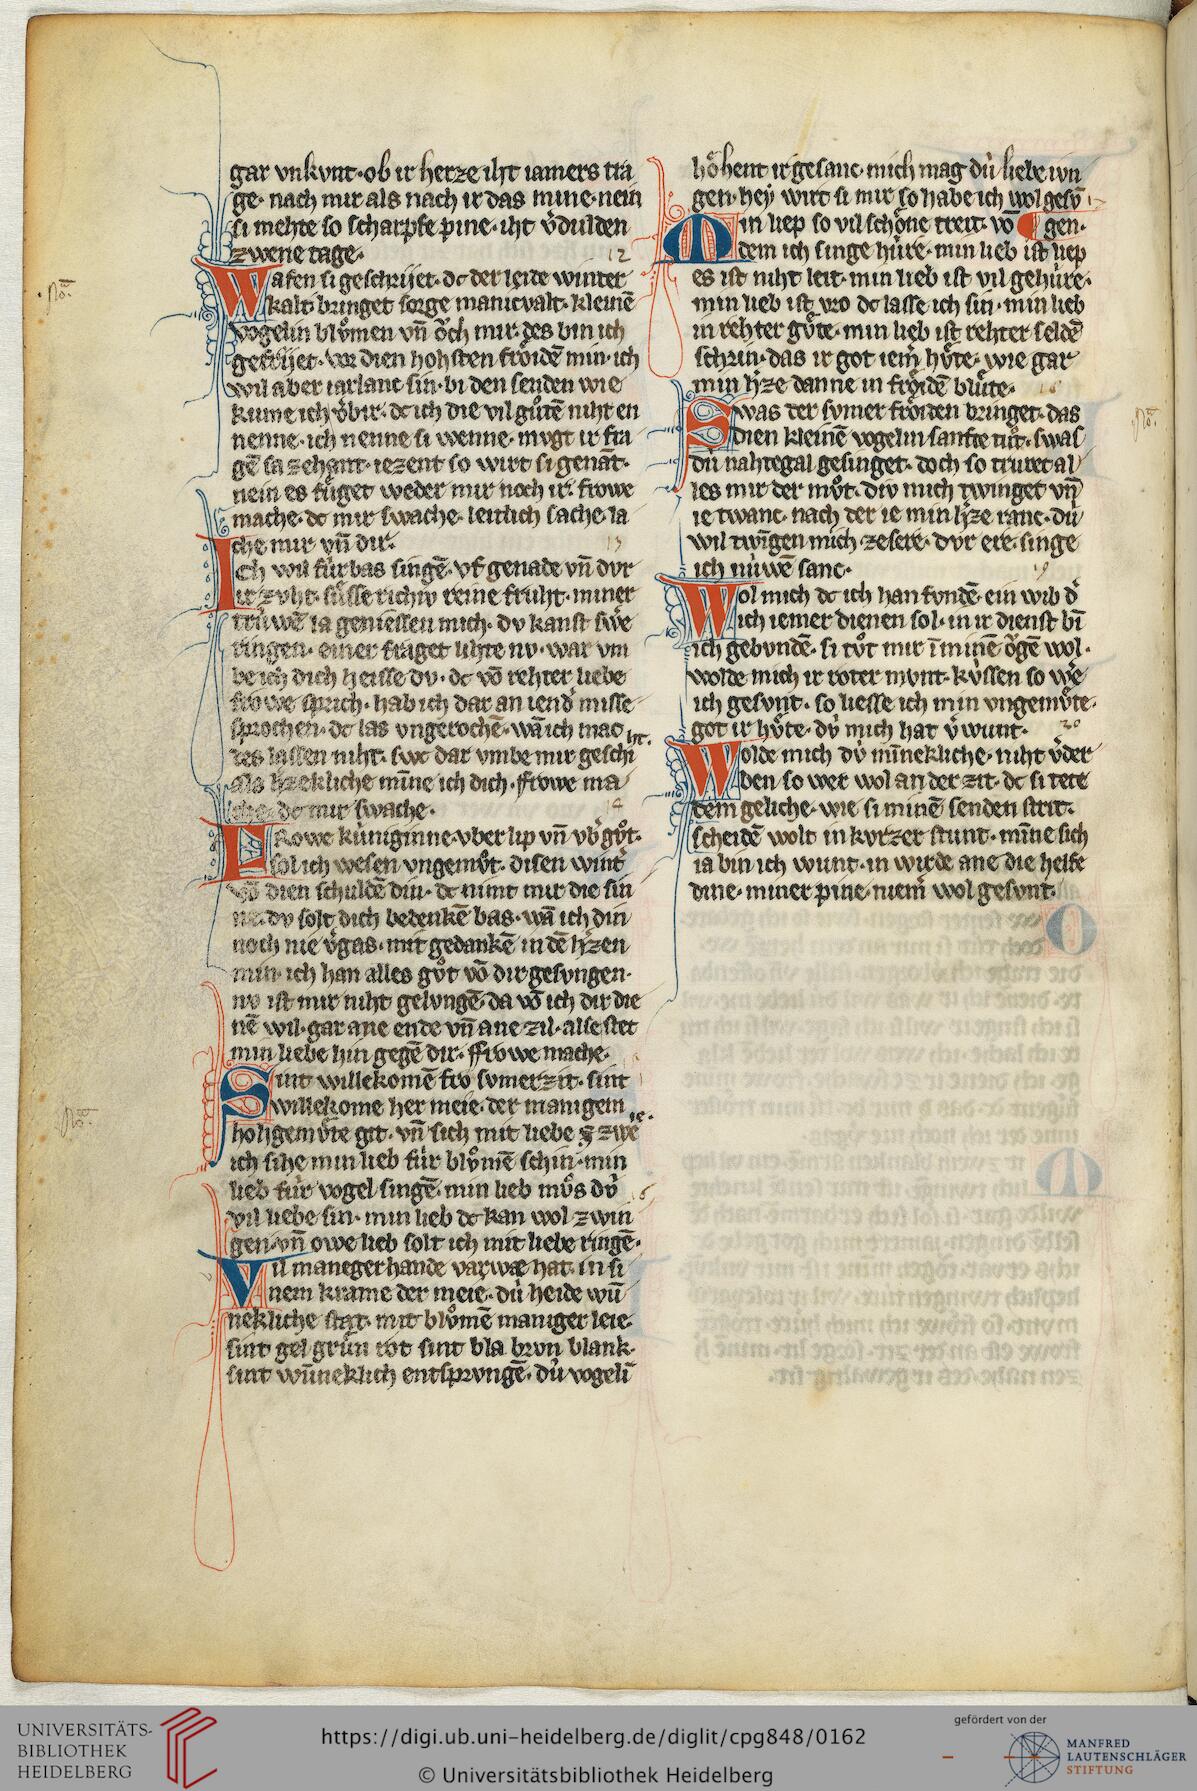 gar vnkvnt · ob ir herze iht iamers tra
ge · nach mir als nach ir das mine · nein
si mehte so scharpfe pine · iht v̾dulden
zwene tage ·
12
Wafen si geschrijet · dc der leide winter
kalt bringet sorge manicvalt · kleinē
vogelin blůmen vn̄ ŏch mir · des bin ich
gefrijet · vor dien hohsten frŏidē min · ich
wil aber iarlanc sin · bi den senden wie
kume ich v̾bir · dc ich die vil gůtē niht en
nenne · ich nenne si wenne · mvgt ir fra
gē sa zehant · iezent so wirt si genāt ·
nein es fůget weder mir noch ir · frowe
mache · dc mir swache · leitlich sache · la
che mir vn̄ dir ·
13
Ich wil fúrbas singē · vf genade vn̄ dvr
ir zvht · sůsse richiv reine fruht · miner
trúwē la geniessen mich · dv kanst sw̾e
ringen · einer fraget lihte nv · war vm
be ich dich heisse dv · dc vō rehter liebe
frowe sprich · hab ich dar an iend̾ misse
sprochen · dc las vngerochē · wā ich mac
des lassen niht · swc dar vmbe mir geschi
ht ·
als h̾zekliche mīne ich dich · ffrowe ma
che · dc mir swache ·
14
FRowe kúniginne · vber lip vn̄ vb̾ gůt ·
sol ich wesen vngemůt · disen wint̾
vō dien schuldē din · dc nimt mir die sin
ne · dv solt dich bedenkē bas · wā ich din
noch nie v̾gas · mit gedankē in dē h̾zen
min · ich han alles gůt vō dir gesvngen ·
nv ist mir niht gelvngē · da vō ich dir die
nē wil · gar ane ende vn̄ ane zil · alse stet
min liebe hin gegē dir · ffrowe mache ·
Sint willekomē fro svmerzit · sint
willekome her meie · der manigem
hohgemv̊te git · vn̄ sich mit liebe zwe
ie ·
ich sihe min lieb fúr blůmē schin · min
lieb fúr vogel singē · min lieb mv̊s dv́
16
vil liebe sin · min lieb dc kan wol zwin
gen · vn̄ owe lieb solt ich mit liebe ringē ·
Vil maneger hande varwe hat · in si
nem krame der meie · dú heide wū
nekliche stat · mit blůmē maniger leie ·
sint gel grůn rot sint bla brvn blank ·
sint wūneklich entsprvngē · dú vogelī
hŏhent ir gesanc · mich mag dú liebe ivn
gen · hey wirt si mir so habe ich wol gesv̄
17
gen ·
Min liep so vil schŏne treit · vō
dem ich singe húre · min lieb ist liep
es ist niht leit · min lieb ist vil gehúre ·
min lieb ist vro dc lasse ich sin · min lieb
in rehter gůte · min lieb ist rehter seldē
schrin · das ir got iem̾ hůte · wie gar
min h̾ze danne in frŏidē blůte ·
18
Swas der svmer frŏiden bringet · das
dien kleinē vogelin sanfte tůt · swas
dú nahtegal gesinget · doch so truret al
les mir der můt · div mich twinget vn̄
ie twanc · nach der ie min h̾ze ranc · dú
wil twīgen mich · zesere · dvr ere · singe
ich núwē sanc ·
19
Wol mich dc ich han fvndē · ein wib d̾
ich iemer dienen sol · in ir dienst bī
ich gebvndē · si tůt mir ī minē ŏgē wol ·
wolde mich ir roter mvnt · kússen so we
ich gesvnt · so liesse ich min vngemůte ·
got ir hůte · dú mich hat v̾wunt ·
20
Wolde mich dú mīnekliche · niht v̾der
ben so wer wol an der zit · dc si tete
dem geliche · wie si minē senden strit ·
scheidē wolt in kvrzer stunt · mīne sich
ia bin ich wunt · in wirde ane die helfe
dine · miner pine · niem̾ wol gesvnt ·
UNIVERSITÄTS-
BIBLIOTHEK
HEIDELBERG
https://digi.ub.uni-heidelberg.de/diglit/cpg848/0162
© Universitätsbibliothek Heidelberg
gefördert von der
MANFRED
LAUTENSCHLÄGER
STIFTUNG